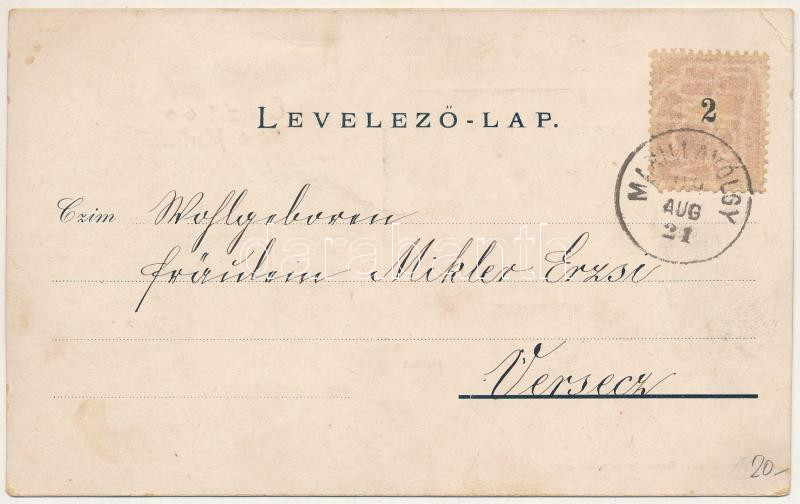 LEVELEZŐ-LAP.
2
MARILLAVÖLGY
AUG
21
Czim Wohlgeboren
fräulein Mikler Erzsi
Versecz
darabanth
20.-